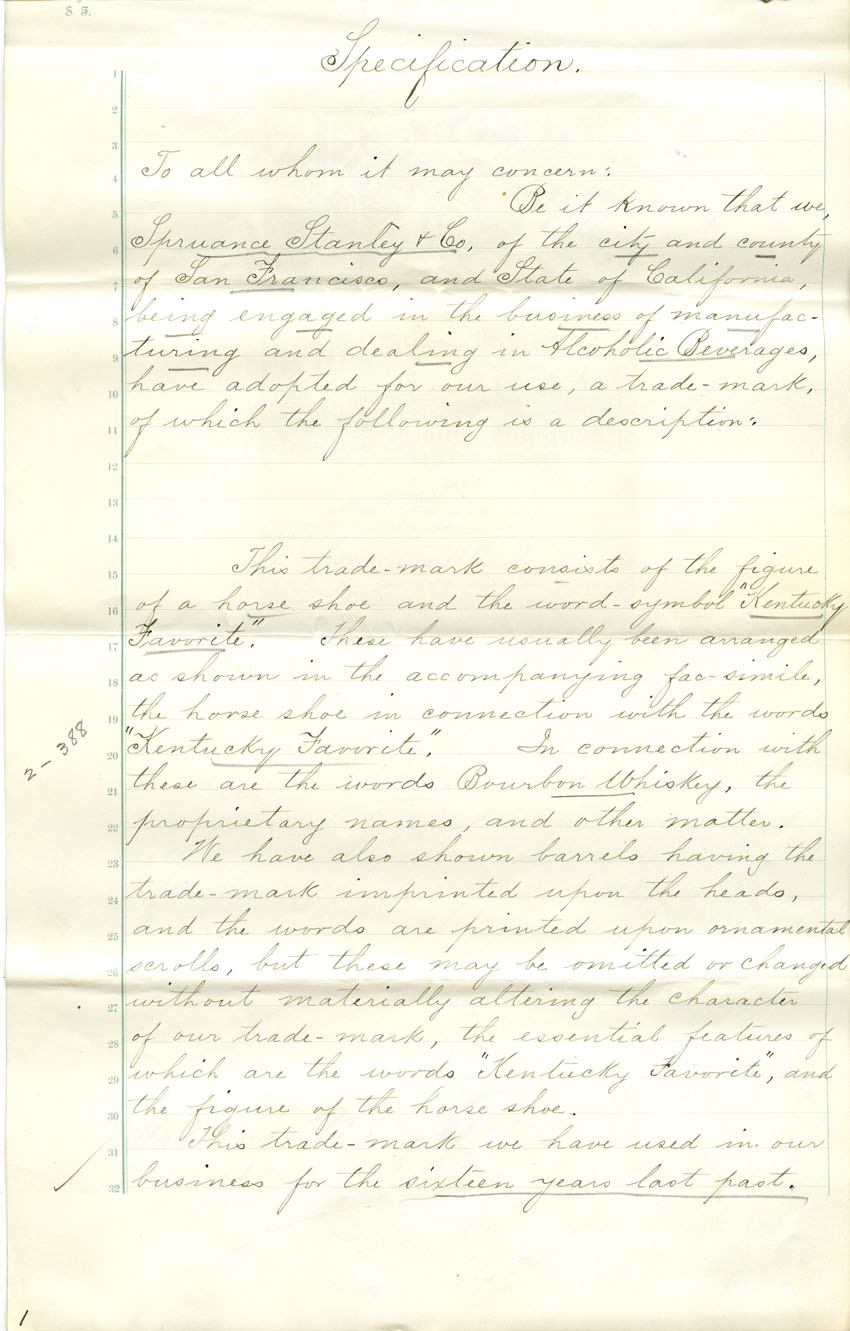 S F.
Specification.
1
2
3
4 To all whom it may concern:
5 Be it known that we,
6 Spruance Stanley & Co, of the city and county
7 of San Francisco, and State of California,
8 being engaged in the business of manufac-
9 turing and dealing in Alcoholic Beverages,
10 have adopted for our use, a trade-mark,
11 of which the following is a description:
12
13
14
15 This trade-mark consists of the figure
16 of a horse shoe and the word-symbol "Kentucky
17 Favorite". These have usually been arranged
18 as shown in the accompanying fac-simile,
19 the horse shoe in connection with the words
20 "Kentucky Favorite". In connection with
21 these are the words Bourbon Whiskey, the
22 proprietary names, and other matter.
23 We have also shown barrels having the
24 trade-mark imprinted upon the heads,
25 and the words are printed upon ornamental
26 scrolls, but these may be omitted or changed
27 without materially altering the character
28 of our trade-mark, the essential features of
29 which are the words "Kentucky Favorite", and
30 the figure of the horse shoe.
31 This trade-mark we have used in our
32 business for the sixteen years last past.
2-388
1